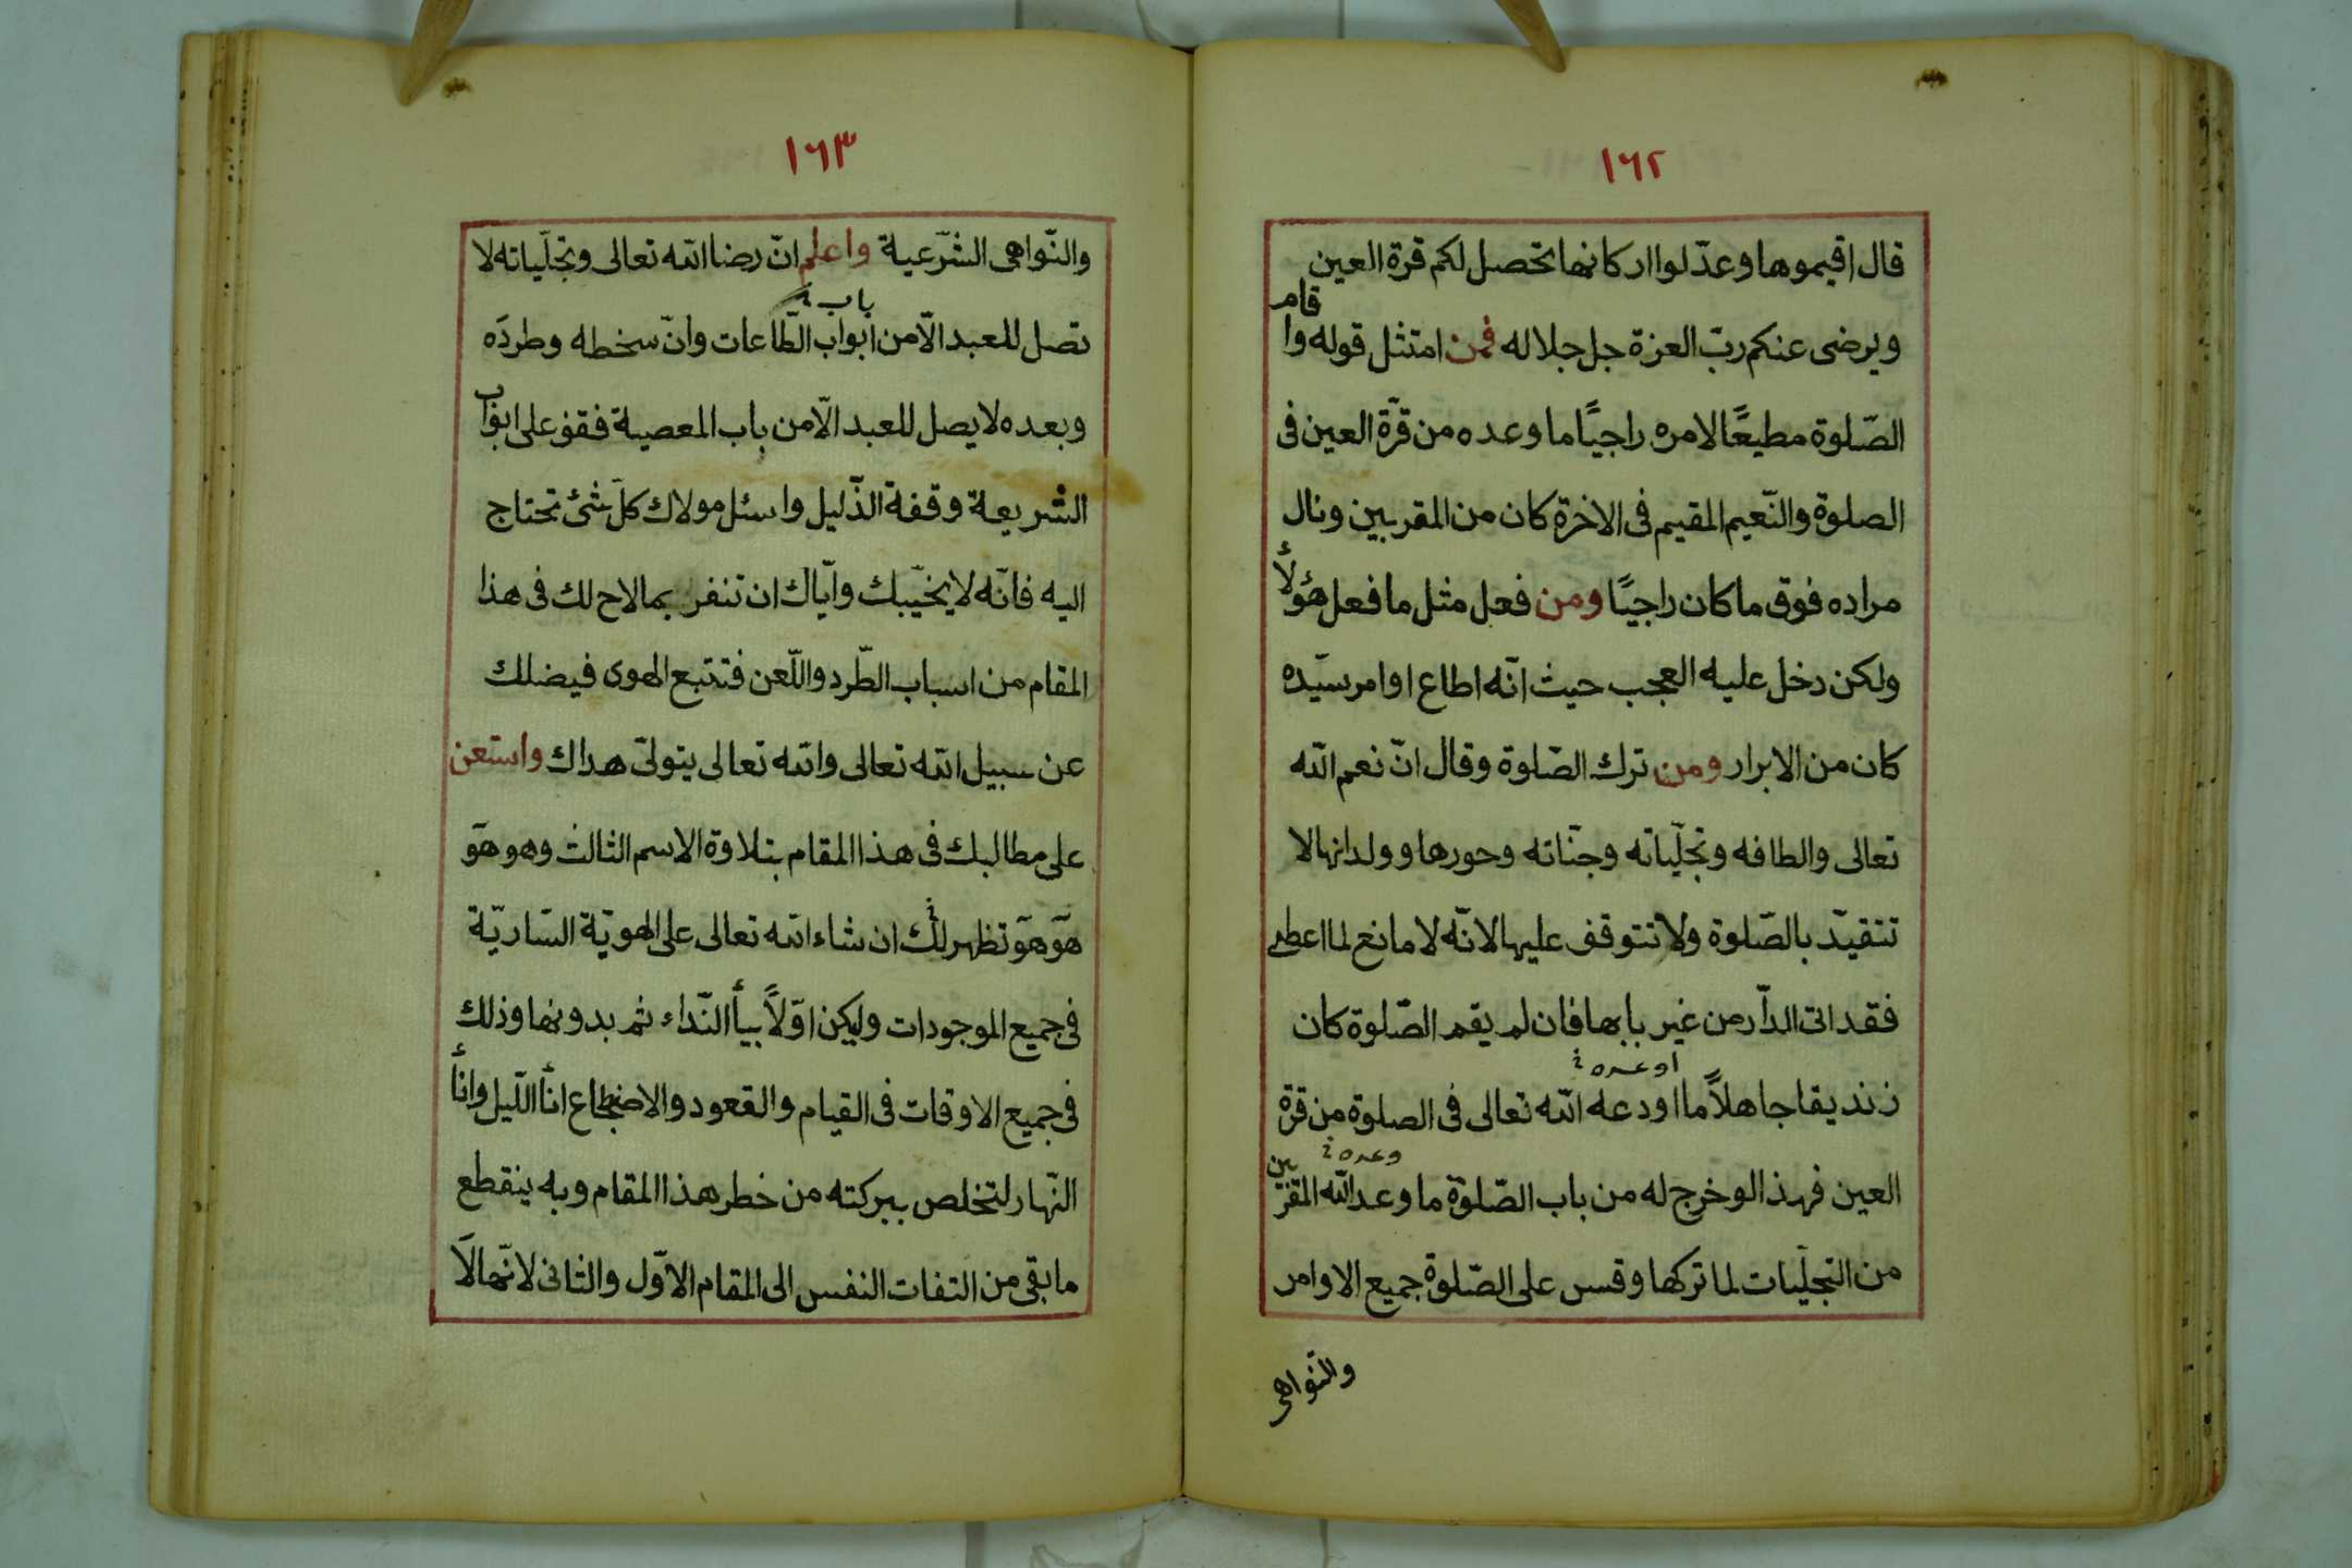 ١٦٢
قال اقيموها وعدّلوا اركانها تحصل لكم قرة العين
ويرضى عنكم ربّ العزة جل جلاله فمن امتثل قوله واقام
الصّلوة مطيعًا لامره راجيًا ما وعده من قرّة العين فى
الصلوة والنّعيم المقيم فى الاخرة كان من المقربين ونال
مراده فوق ما كان راجيًا ومن فعل مثل ما فعل هؤلاء
ولكن دخل عليه العجب حيث انّه اطاع اوامر سيّده
كان من الابرار ومن ترك الصّلوة وقال انّ نعم الله
تعالى والطافه وتجلّياته وجنّاته وحورها وولدانها لا
تتقيّد بالصّلوة ولا تتوقف عليها لانّه لا مانع لما اعطى
فقد اتى الدّار من غير بابها فان لم يقم الصّلوة كان
اوعده
زنديقا جاهلًا ما اودعه الله تعالى فى الصلوة من قرة
وعده
العين فهذا لو خرج له من باب الصّلوة ما وعد الله المقربين
من التجلّيات لما تركها وقس على الصّلوة جميع الاوامر
والنّواهى
١٦٣
والنّواهى الشّرعية واعلم انّ رضا الله تعالى وتجلّياته لا
باب
تصل للعبد الّا من ابواب الطّاعات وانّ سخطه وطرده
وبعده لا يصل للعبد الّا من باب المعصية فقف على ابواب
الشريعة وقفة الذّليل واسئل مولاك كلّ شئ تحتاج
اليه فانّه لا يخيّبك وايّاك ان تنفر بما لاح لك فى هذا
المقام من اسباب الطّرد واللّعن فتتبع الهوى فيضلك
عن سبيل الله تعالى والله تعالى يتولّى هداك واستعن
على مطالبك فى هذا المقام بتلاوة الاسم الثالث وهو هو
هو هو تظهر لك ان شاء الله تعالى على الهويّة السّاريّة
فى جميع الموجودات وليكن اوّلًا بيأ النّداء ثم بدونها وذلك
فى جميع الاوقات فى القيام والقعود والاضطجاع انأ اللّيل وانأ
النّهار لتخلص ببركته من خطر هذا المقام وبه ينقطع
ما بقى من التفات النفس الى المقام الاوّل والثانى لانّها لا